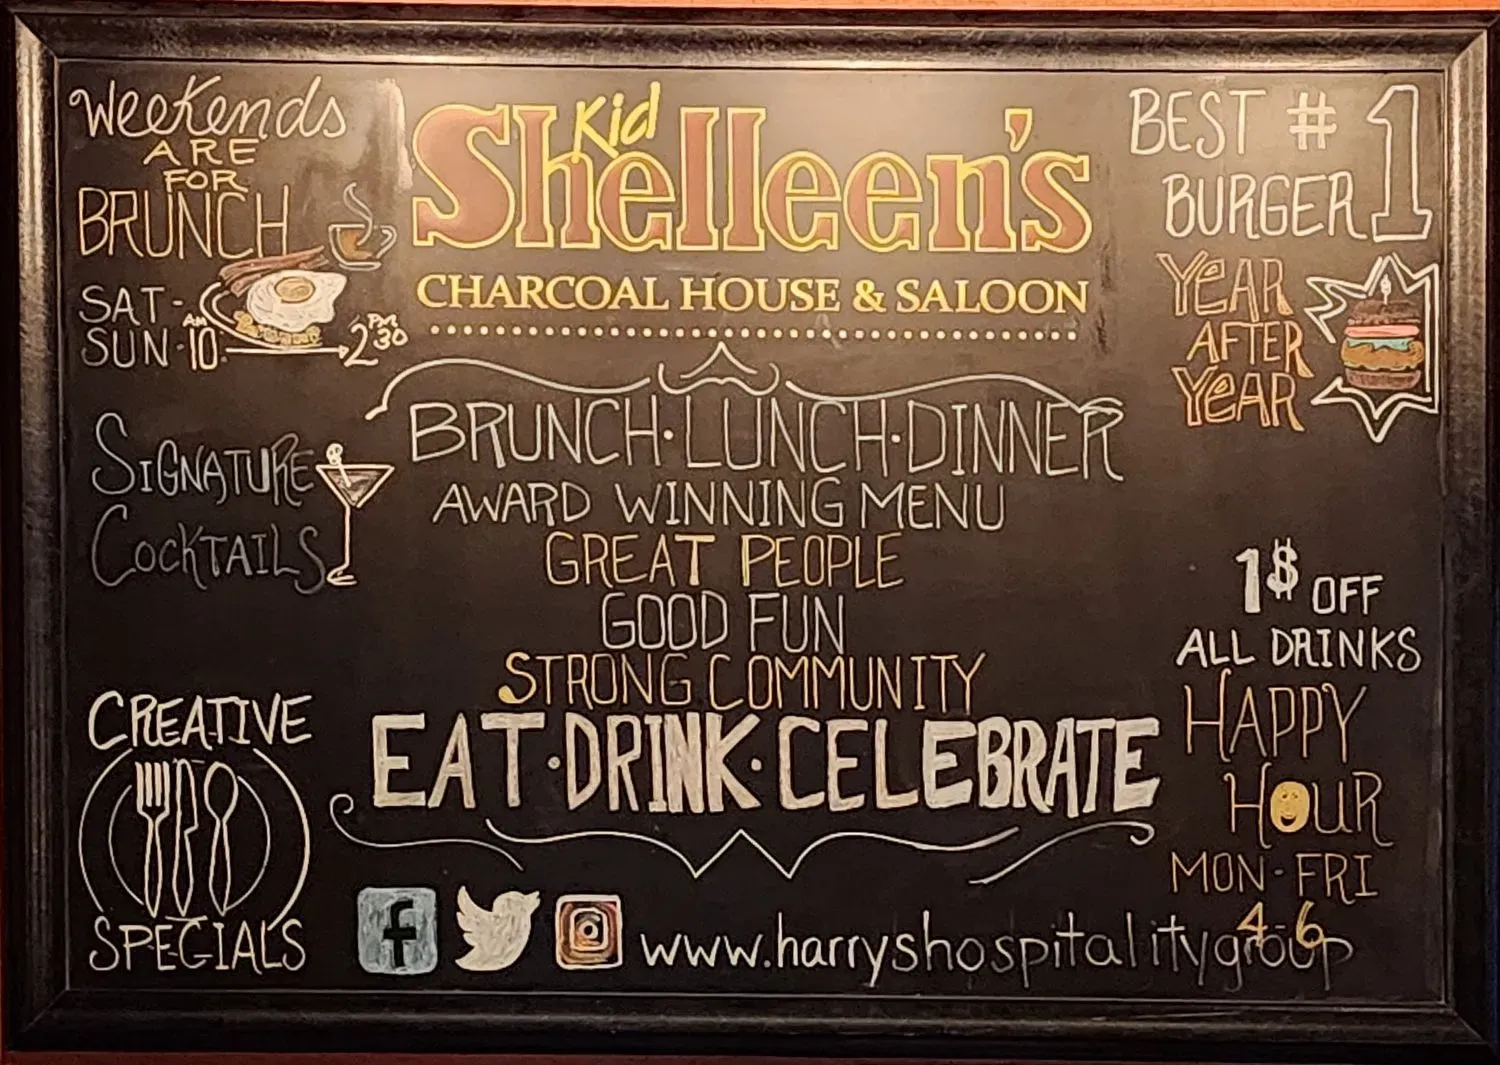 Weekends
ARE
FOR
BRUNCH
SAT-
SUN·10AM→2:30PM
SIGNATURE
COCKTAILS
CREATIVE
SPECIALS
Kid
Shelleen's
CHARCOAL HOUSE & SALOON
BRUNCH·LUNCH·DINNER
AWARD WINNING MENU
GREAT PEOPLE
GOOD FUN
STRONG COMMUNITY
EAT·DRINK·CELEBRATE
f
www.harryshospitalitygroup
BEST #1
BURGER
YEAR
AFTER
YEAR
1$ OFF
ALL DRINKS
HAPPY
HOUR
MON-FRI
4-6